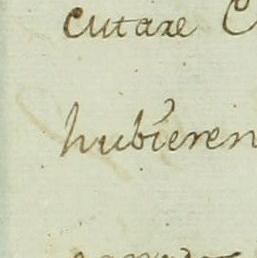 cutare C
hubieren